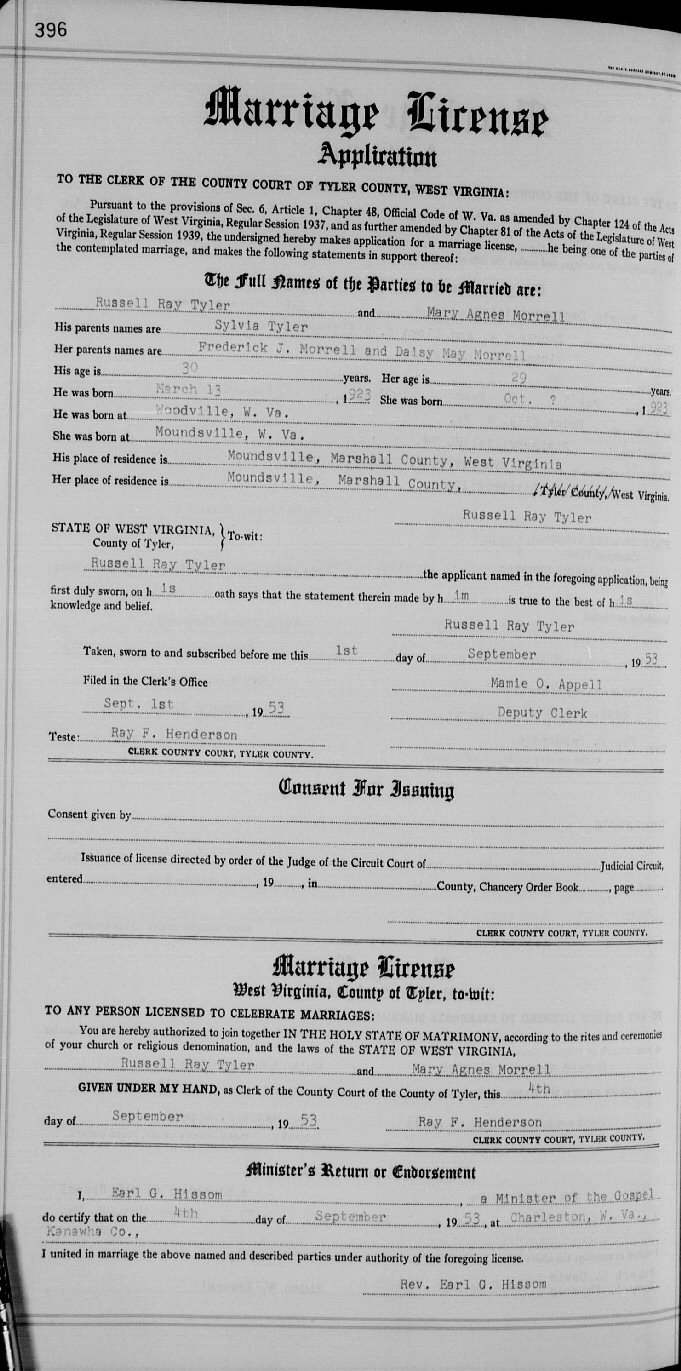 396
Marriage License
Application
TO THE CLERK OF THE COUNTY COURT OF TYLER COUNTY, WEST VIRGINIA:
Pursuant to the provisions of Sec. 6, Article 1, Chapter 48, Official Code of W. Va. as amended by Chapter 124 of the Acts
of the Legislature of West Virginia, Regular Session 1937, and as further amended by Chapter 81 of the Acts of the Legislature of West
Virginia, Regular Session 1939, the undersigned hereby makes application for a marriage license, he being one of the parties of
the contemplated marriage, and makes the following statements in support thereof:
The Full Names of the Parties to be Married are:
Russell Ray Tyler and Mary Agnes Morrell
His parents names are Sylvia Tyler
Her parents names are Frederick J. Morrell and Daisy May Morrell
His age is 30 years. Her age is 29 years.
He was born March 13, 1923 She was born Oct. ?, 1923
He was born at Woodville, W. Va.
She was born at Moundsville, W. Va.
His place of residence is Moundsville, Marshall County, West Virginia
Her place of residence is Moundsville, Marshall County, /Tyler County,/ West Virginia.
Russell Ray Tyler
STATE OF WEST VIRGINIA, } To-wit:
County of Tyler,
Russell Ray Tyler the applicant named in the foregoing application, being
first duly sworn, on h is oath says that the statement therein made by h im is true to the best of h is
knowledge and belief.
Russell Ray Tyler
Taken, sworn to and subscribed before me this 1st day of September, 19 53
Filed in the Clerk's Office Mamie O. Appell
Sept. 1st, 19 53 Deputy Clerk
Teste: Ray F. Henderson
CLERK COUNTY COURT, TYLER COUNTY.
Consent For Issuing
Consent given by
Issuance of license directed by order of the Judge of the Circuit Court of Judicial Circuit,
entered, 19, in County, Chancery Order Book, page
CLERK COUNTY COURT, TYLER COUNTY.
Marriage License
West Virginia, County of Tyler, to-wit:
TO ANY PERSON LICENSED TO CELEBRATE MARRIAGES:
You are hereby authorized to join together IN THE HOLY STATE OF MATRIMONY, according to the rites and ceremonies
of your church or religious denomination, and the laws of the STATE OF WEST VIRGINIA,
Russell Ray Tyler and Mary Agnes Morrell
GIVEN UNDER MY HAND, as Clerk of the County Court of the County of Tyler, this 4th
day of September, 19 53. Ray F. Henderson
CLERK COUNTY COURT, TYLER COUNTY.
Minister's Return or Endorsement
I, Earl G. Hissom, a Minister of the Gospel
do certify that on the 4th day of September, 19 53, at Charleston, W. Va.,
Kanawha Co.,
I united in marriage the above named and described parties under authority of the foregoing license.
Rev. Earl G. Hissom